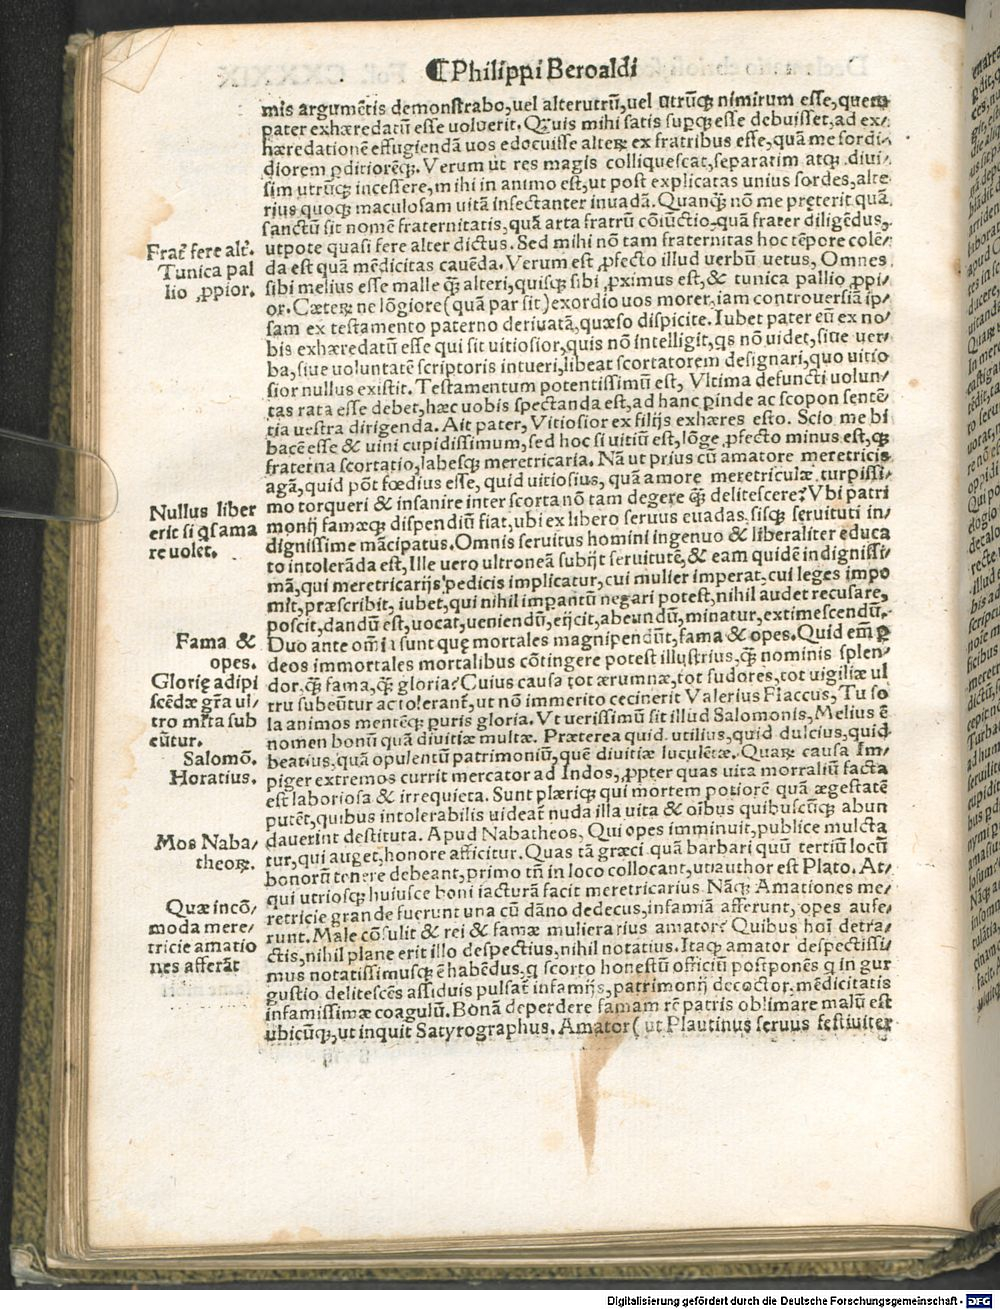 ¶Philippi Beroaldi
mis argumētis demonstrabo, uel alterutrū, uel utrūq; nimirum esse, quem
pater exhæredatū esse uoluerit. Quis mihi satis supq; esse debuisset, ad ex/
hæredationē effugiendā uos edocuisse alteꝝ ex fratribus esse, quā me sordi/
diorem ꝑditiorēq;. Verum ut res magis colliquescat, separatim atq; diui/
sim utrūq; incessere, mihi in animo est, ut post explicatas unius sordes, alte/
rius quoq; maculosam uitā insectanter inuadā. Quanq̄ nō me pręterit quā
sanctū sit nomē fraternitatis, quā arta fratrū cōiūctio, quā frater diligēdus,
utpote quasi fere alter dictus. Sed mihi nō tam fraternitas hoc tēpore colē/
da est quā mēdicitas cauēda. Verum est ꝓfecto illud uerbū uetus, Omnes
sibi melius esse malle q̄ alteri, quisq; sibi ꝓximus est, & tunica pallio ꝓpi/
or. Cæteꝝ ne lōgiore (quā par sit) exordio uos morer, iam controuersiā ip/
sam ex testamento paterno deriuatā, quæso dispicite. Iubet pater eū ex no/
bis exhæredatū esse qui sit uitiosior, quis nō intelligit, qs nō uidet, siue uer/
ba, siue uoluntatē scriptoris intueri, libeat scortatorem designari, quo uitio
sior nullus existit. Testamentum potentissimū est, Vltima defuncti uolun/
tas rata esse debet, hæc uobis spectanda est, ad hanc ꝑinde ac scopon sentē/
tia uestra dirigenda. Ait pater, Vitiosior ex filijs exhæres esto. Scio me bi
bacē esse & uini cupidissimum, sed hoc si uitiū est, lōge ꝓfecto minus est, q̄
fraterna scortatio, labesq; meretricaria. Nā ut prius cū amatore meretricis
agā, quid pōt fœdius esse, quid uitiosius, quā amore meretriculæ turpissi/
mo torqueri & insanire inter scorta nō tam degere q̄ delitescere? Vbi patri
monij famæq; dispendiū fiat, ubi ex libero seruus euadas, sisq; seruituti in/
dignissime mācipatus. Omnis seruitus homini ingenuo & liberaliter educa
to intolerāda est, Ille uero ultroneā subijt seruitutē, & eam quidē indignissi/
mā, qui meretricarijs pedicis implicatur, cui mulier imperat, cui leges impo
nit, præscribit, iubet, qui nihil imparitū negari potest, nihil audet recusare,
poscit, dandū est, uocat, ueniendū, eijcit, abeundū, minatur, extimescendū.
Duo ante om̄ia sunt quę mortales magnipendūt, fama & opes. Quid em̄ ꝑ
deos immortales mortalibus cōtingere potest illustrius, q̄ nominis splen/
dor, q̄ fama, q̄ gloria? Cuius causa tot ærumnæ, tot sudores, tot uigiliæ ul
tru subeūtur ac tolerant̄, ut nō immerito cecinerit Valerius Flaccus, Tu so
la animos mentēq; puris gloria. Vt uerissimū sit illud Salomonis, Melius ē
nomen bonū quā diuitiæ multæ. Præterea quid utilius, quid dulcius, quid
beatius, quā opulentū patrimoniū, quē diuitiæ luculētæ. Quaꝝ causa Im/
piger extremos currit mercator ad Indos, ꝓpter quas uita morraliū facta
est laboriosa & irrequieta. Sunt plæriq; qui mortem potiorē quā ægestatē
putēt, quibus intolerabilis uideat̄ nuda illa uita & oībus quibuscūq; abun
dauerint destituta. Apud Nabatheos, Qui opes imminuit, publice mulcta
tur, qui auget, honore afficitur. Quas tā græci quā barbari quū tertiū locū
bonorū tenere debeant, primo tn̄ in loco collocant, ut author est Plato. At/
qui utriosq; huiusce boni iacturā facit meretricarius. Nāq; Amationes me/
retricie grande fuerunt una cū dāno dedecus, infamiā afferunt, opes aufe/
runt. Male cōsulit & rei & famæ mulierarius amator? Quibus hoī detra/
ctis, nihil plane erit illo despectius, nihil notatius. Itaq; amator despectissi/
mus notatissimusq; ē habēdus, q scorto honestū officiū postponēs q in gur
gustio delitescēs assiduis pulsat̄ infamijs, patrimonij decoctor, mēdicitatis
infamissimæ coagulū. Bonā deperdere famam rē patris oblimare malū est
ubicūq;, ut inquit Satyrographus. Amator (ut Plautinus seruus festiuiter
Frat̄ fere alt̄.
Tunica pal
lio ꝓpior.
Nullus liber
erit si q̄s ama
re uolet.
Fama &
opes.
Glorię adipi
scēdæ gr̄a ul/
tro ml̄ta sub
eūtur.
Salomō.
Horatius.
Mos Naba/
theoꝝ.
Quæ incō/
moda mere/
tricie amatio
nes afferāt
Digitalisierung gefördert durch die Deutsche Forschungsgemeinschaft - DFG